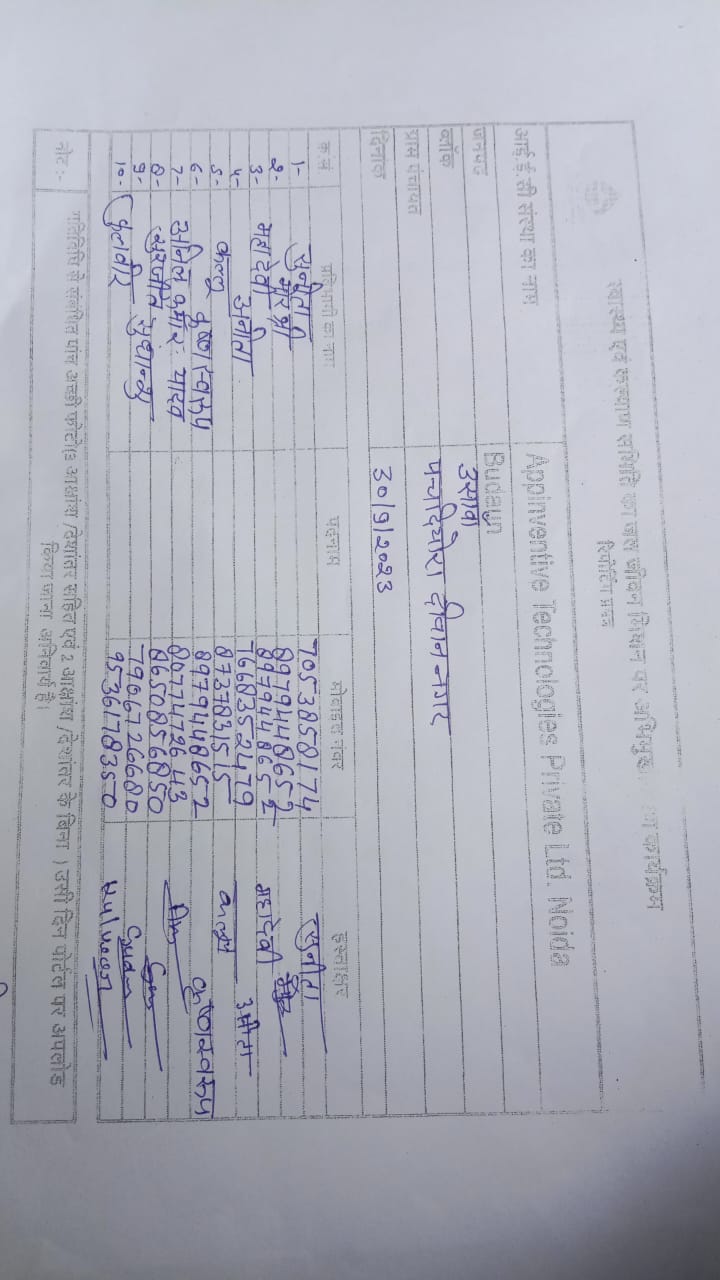 स्वास्थ्य एवं कल्याण समिति का जल जीवन मिशन पर कार्यक्रम
रिपोर्टिंग प्रपत्र
आई.ई.सी संस्था का नाम Appinventive Technologies Private Ltd. Noida
जनपद Budayun
ब्लॉक उसावा
ग्राम पंचायत नगर
दिनांक 30/9/2023
क्र.सं प्रतिभागी का नाम पदनाम मोबाइल नंबर हस्ताक्षर
1- सुनीता 7053850174 सुनीता
2- 8979448652
3- महादेवी 8979448652 महादेवी
4- अनीता 7668352479
5- कल्लू 8737834515
6- कृष्णस्वरूप 8979448652 कृष्णस्वरूप
7- अनिल कुमार यादव 8077472643
8- सुरजीत 8650856850
9- सुधान्शु 7906726680
10- कुलवीर 9536178350
नोट :- गतिविधि से संबंधित पांच अच्छी फोटो(3 आक्षांश /देशांतर सहित एवं 2 आक्षांश /देशांतर के बिना ) उसी दिन पोर्टल पर अपलोड
किया जाना अनिवार्य है।